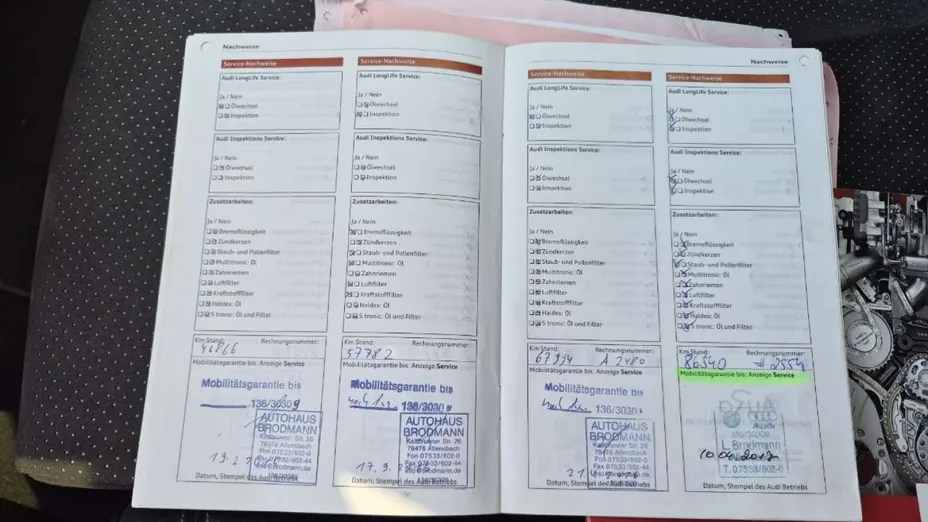 Nachweise
Service-Nachweise
Audi LongLife Service:
Ja / Nein
Ölwechsel
Inspektion
Audi Inspektions Service:
Ja / Nein
Ölwechsel
Inspektion
Zusatzarbeiten:
Ja / Nein
Bremsflüssigkeit
Zündkerzen
Staub- und Pollenfilter
Multitronic: Öl
Zahnriemen
Luftfilter
Kraftstofffilter
Haldex: Öl
S tronic: Öl und Filter
Km Stand:
Rechnungsnummer:
Mobilitätsgarantie bis: Anzeige Service
Mobilitätsgarantie bis
AUTOHAUS
BRODMANN
Kaltbrunner Str. 26
78476 Allensbach
Fon 07533/802-0
Datum, Stempel des Audi Betriebs
Service-Nachweise
Audi LongLife Service:
Ja / Nein
Ölwechsel
Inspektion
Audi Inspektions Service:
Ja / Nein
Ölwechsel
Inspektion
Zusatzarbeiten:
Ja / Nein
Bremsflüssigkeit
Zündkerzen
Staub- und Pollenfilter
Multitronic: Öl
Zahnriemen
Luftfilter
Kraftstofffilter
Haldex: Öl
S tronic: Öl und Filter
Km Stand:
Rechnungsnummer:
57782
Mobilitätsgarantie bis: Anzeige Service
Mobilitätsgarantie bis
AUTOHAUS
BRODMANN
Kaltbrunner Str. 26
78476 Allensbach
Fon 07533/802-0
Fax 07533/802-44
Datum, Stempel des Audi Betriebs
Nachweise
Service-Nachweise
Audi LongLife Service:
Ja / Nein
Ölwechsel
Inspektion
Audi Inspektions Service:
Ja / Nein
Ölwechsel
Inspektion
Zusatzarbeiten:
Ja / Nein
Bremsflüssigkeit
Zündkerzen
Staub- und Pollenfilter
Multitronic: Öl
Zahnriemen
Luftfilter
Kraftstofffilter
Haldex: Öl
S tronic: Öl und Filter
Km Stand:
Rechnungsnummer:
Mobilitätsgarantie bis: Anzeige Service
Mobilitätsgarantie bis
AUTOHAUS
BRODMANN
Kaltbrunner Str. 26
78476 Allensbach
Fon 07533/802-0
Datum, Stempel des Audi Betriebs
Service-Nachweise
Audi LongLife Service:
Ja / Nein
Ölwechsel
Inspektion
Audi Inspektions Service:
Ja / Nein
Ölwechsel
Inspektion
Zusatzarbeiten:
Ja / Nein
Bremsflüssigkeit
Zündkerzen
Staub- und Pollenfilter
Multitronic: Öl
Zahnriemen
Luftfilter
Kraftstofffilter
Haldex: Öl
S tronic: Öl und Filter
Km Stand:
Rechnungsnummer:
86540 # 2554
Mobilitätsgarantie bis: Anzeige Service
L. Brodmann
10.04.2017
T. 07533/802-0
Datum, Stempel des Audi Betriebs